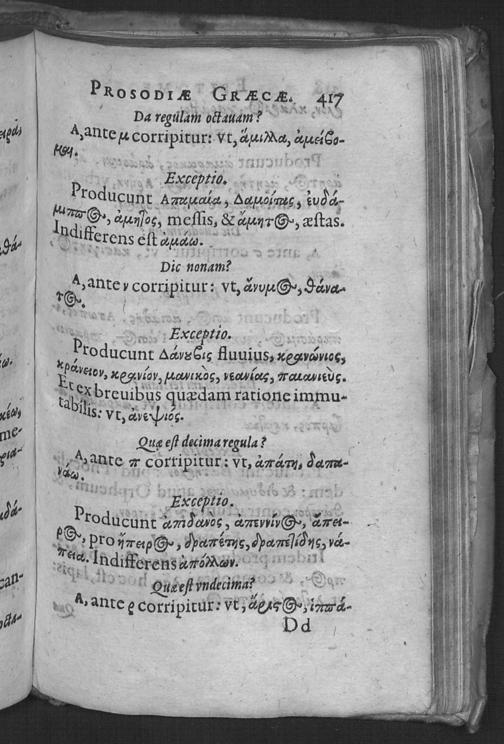 PROSODIÆ GRÆCÆ. 417
Da regulam octauam?
Α, ante μ corripitur: vt, ἅμιλλα, ἀμείβο-
μαι.
Exceptio.
Producunt Απαμαία, Δαμοίτας, ἐυδά-
μιππος, ἀμητὸς, messis, & ἄμητος, æstas.
Indifferens est ἀμάω.
Dic nonam?
Α, ante ν corripitur: vt, ἄνυμος, θάνα-
τος.
Exceptio.
Producunt Δάνυβις fluuius, κρανώνιος,
κράνειον, κρανίον, μανικὸς, νεανίας, παιανιεὺς.
Et ex breuibus quædam ratione immu-
tabilis: vt, ἀνεψιός.
Quæ est decima regula?
Α, ante π corripitur: vt, ἀπάτη, δαπα-
νάω.
Exceptio.
Producunt ἀπιδανος, ἀπεννίνος, ἄπει-
ρος, pro ἤπειρος, δραπέτης, δραπετίδης, νά-
πεια. Indifferens ἀπόλλων.
Quæ est vndecima?
Α, ante ρ corripitur: vt, ἄριστος, ἱππά-
Dd